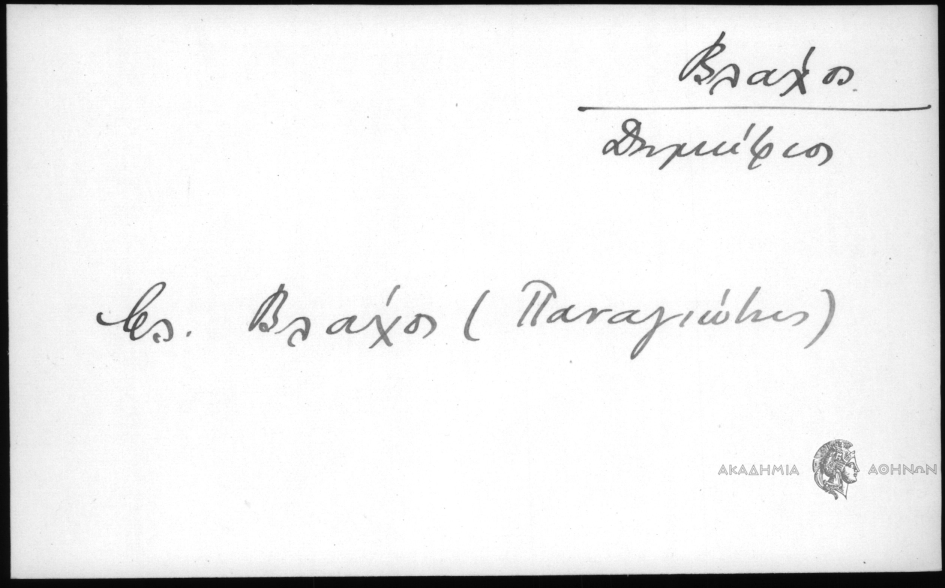 Βλάχος
Δημήτριος
βλ. Βλάχος (Παναγιώτης)
ΑΚΑΔΗΜΙΑ ΑΘΗΝΩΝ